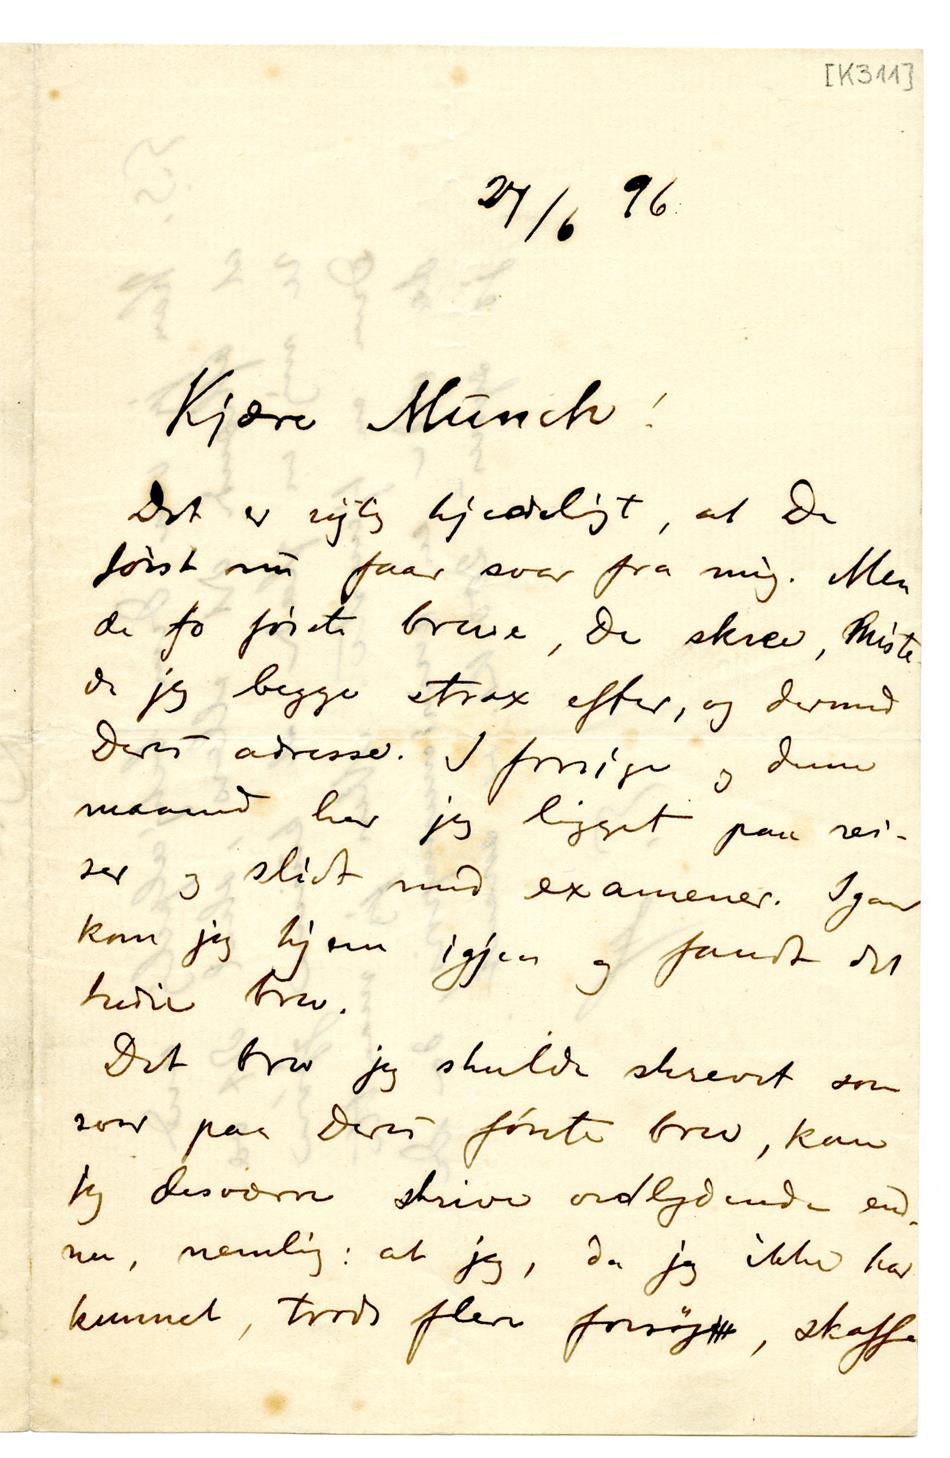 [K311]
27/6 96.
Kjære Munch!
Det er rigtig kjedeligt, at De
først nu faar svar fra mig. Men
de to første breve, De skrev, miste-
de jeg begge strax efter, og dermed
Deres adresse. I forrige og denne
maaned har jeg ligget paa rei-
ser og slidt med examener. Igaar
kom jeg hjem igjen og fandt det
tredie brev.
Det brev jeg skulde skrevet som
svar paa Deres første brev, kan
jeg desværre skrive ordlydende end-
nu, nemlig: at jeg, da jeg ikke har
kunnet, trods flere forsøg, skaffe